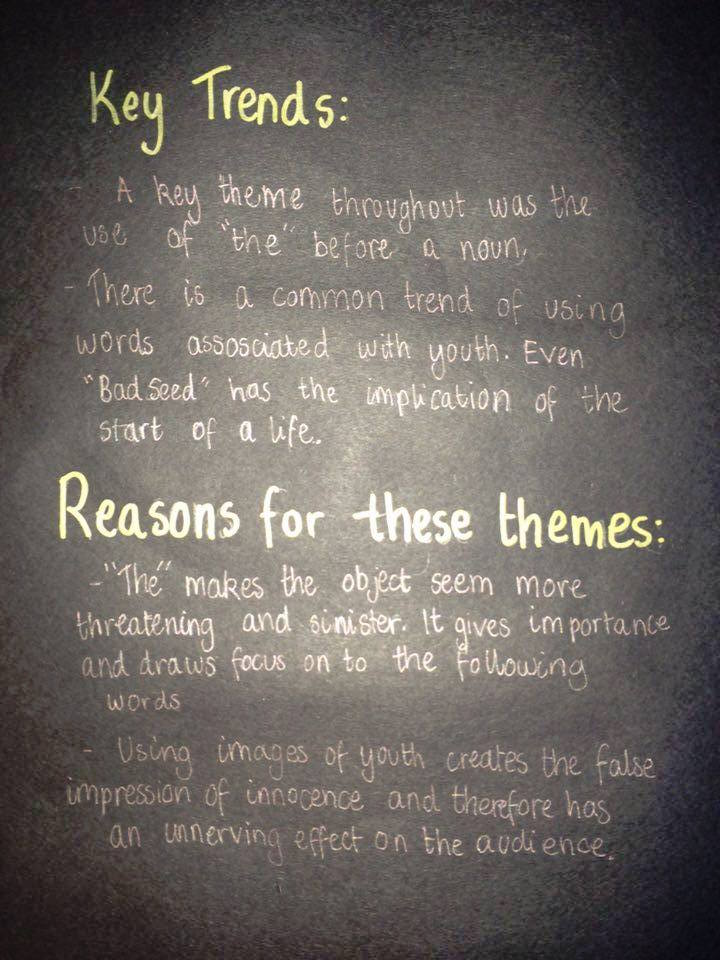 Key Trends:
- A key theme throughout was the
use of "the" before a noun.
- There is a common trend of using
words assosciated with youth. Even
"Bad Seed" has the implication of the
start of a life.
Reasons for these themes:
- "The" makes the object seem more
threatening and sinister. It gives importance
and draws focus on to the following
words
- Using images of youth creates the false
impression of innocence and therefore has
an unnerving effect on the audience.